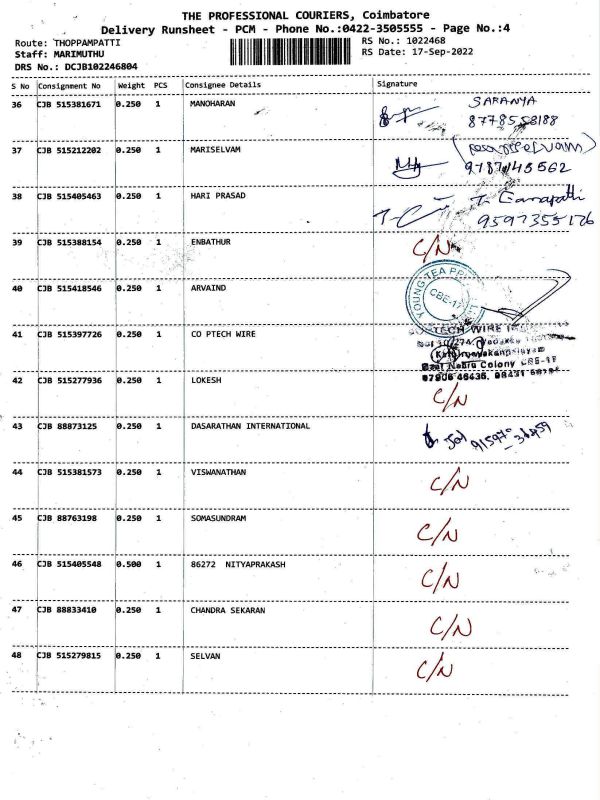 THE PROFESSIONAL COURIERS, Coimbatore
Delivery Runsheet - PCM - Phone No.:0422-3505555 - Page No.:4
Route: THOPPAMPATTI RS No.: 1022468
Staff: MARIMUTHU RS Date: 17-Sep-2022
DRS No.: DCJB102246804
S No Consignment No Weight PCS Consignee Details Signature
36 CJB 515381671 0.250 1 MANOHARAN SARANYA
8778558188
37 CJB 515212202 0.250 1 MARISELVAM
9787145562
38 CJB 515405463 0.250 1 HARI PRASAD T. Ganapathi
9597355126
39 CJB 515388154 0.250 1 ENBATHUR C/N
40 CJB 515418546 0.250 1 ARVAIND YOUNG TEA
CBE-17
41 CJB 515397726 0.250 1 CO PTECH WIRE TECH WIRE
Nehru Colony CBE-17
42 CJB 515277936 0.250 1 LOKESH C/N
43 CJB 88873125 0.250 1 DASARATHAN INTERNATIONAL
44 CJB 515381573 0.250 1 VISWANATHAN C/N
45 CJB 88763198 0.250 1 SOMASUNDRAM C/N
46 CJB 515405548 0.500 1 86272 NITYAPRAKASH C/N
47 CJB 88833410 0.250 1 CHANDRA SEKARAN C/N
48 CJB 515279815 0.250 1 SELVAN C/N